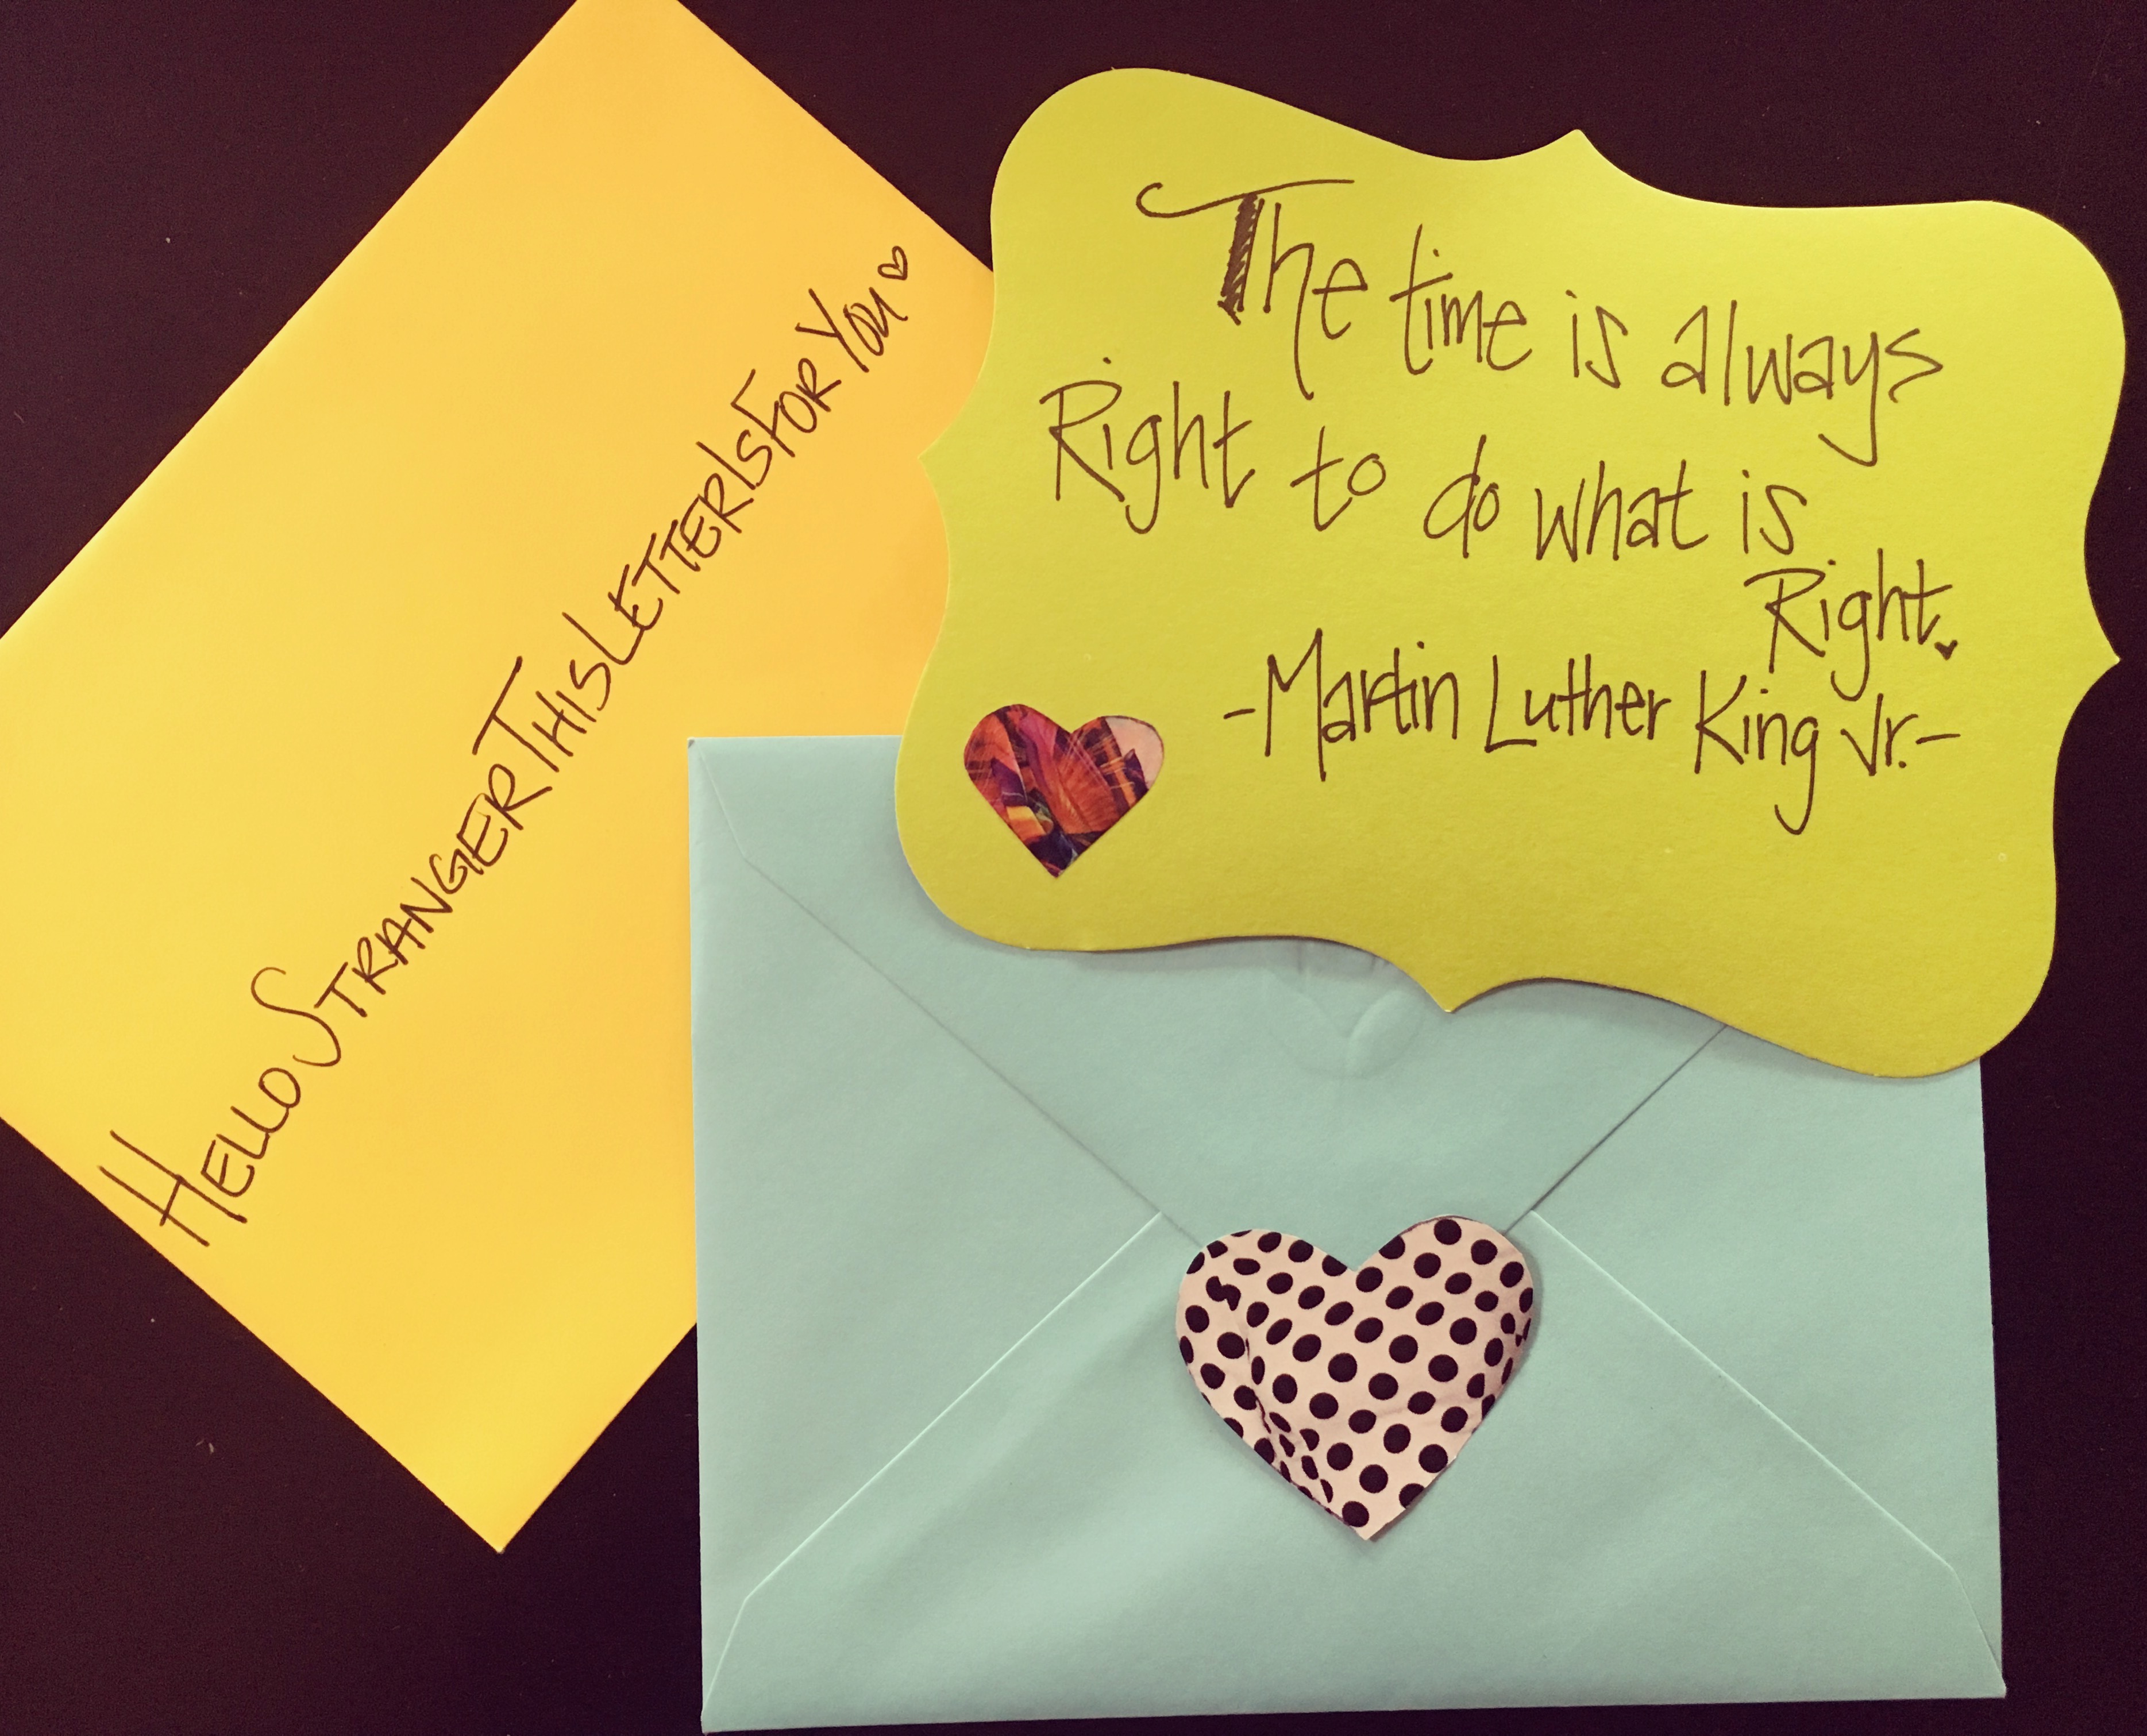 HELLOSTRANGERTHISLETTERISFORYOU
The time is always
Right to do what is
Right.
-Martin Luther King Jr.-